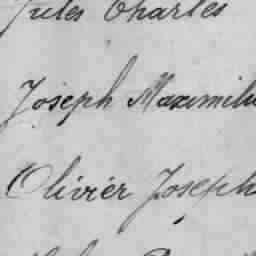 Jules Charles
Joseph Maximili
Olivier Joseph